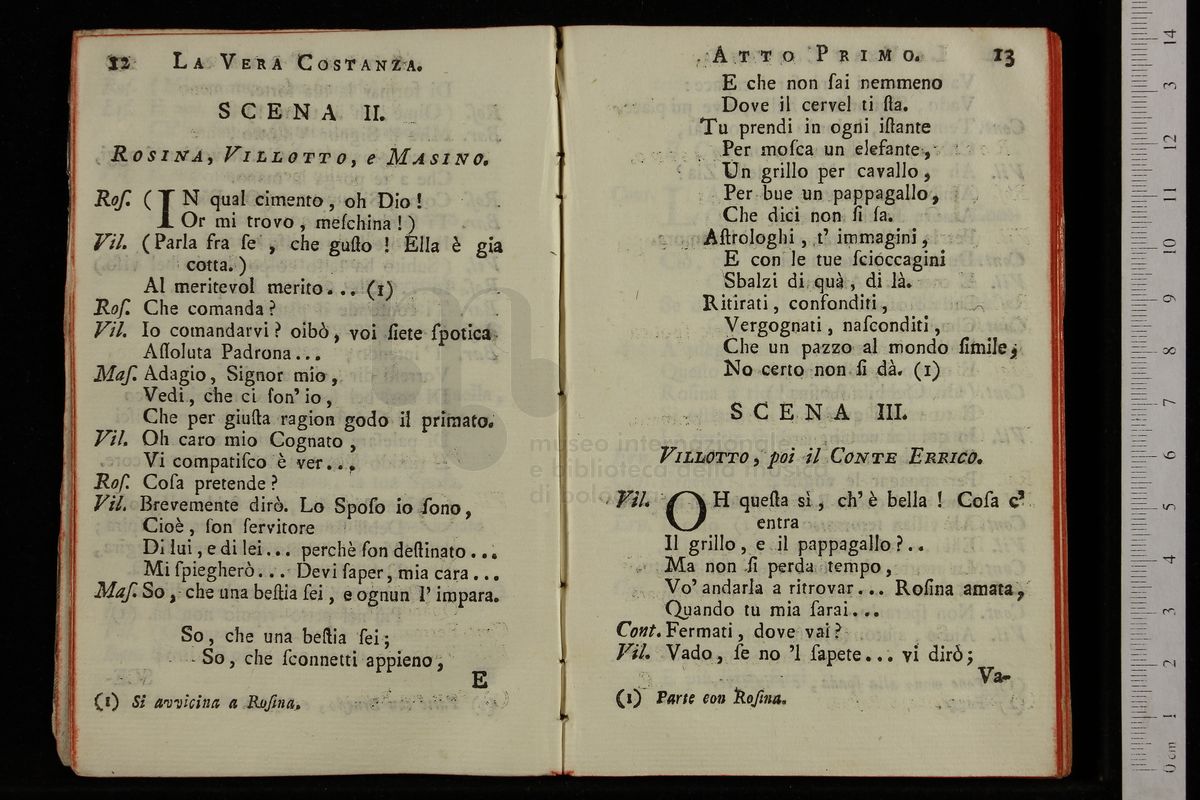 12 LA VERA COSTANZA.
SCENA II.
ROSINA, VILLOTTO, e MASINO.
Roſ. (IN qual cimento, oh Dio!
Or mi trovo, meſchina!)
Vil. (Parla fra ſe, che guſto! Ella è gia
cotta.)
Al meritevol merito... (1)
Roſ. Che comanda?
Vil. Io comandarvi? oibò, voi ſiete ſpotica
Aſſoluta Padrona...
Maſ. Adagio, Signor mio,
Vedi, che ci ſon' io,
Che per giuſta ragion godo il primato.
Vil. Oh caro mio Cognato,
Vi compatiſco è ver...
Roſ. Coſa pretende?
Vil. Brevemente dirò. Lo Spoſo io ſono,
Cioè, ſon ſervitore
Di lui, e di lei... perchè ſon deſtinato...
Mi ſpiegherò... Devi ſaper, mia cara...
Maſ. So, che una beſtia ſei, e ognun l' impara.
So, che una beſtia ſei;
So, che ſconnetti appieno,
E
(1) Si avvicina a Roſina.
ATTO PRIMO. 13
E che non ſai nemmeno
Dove il cervel ti ſta.
Tu prendi in ogni iſtante
Per moſca un elefante,
Un grillo per cavallo,
Per bue un pappagallo,
Che dici non ſi ſa.
Aſtrologhi, t' immagini,
E con le tue ſcioccagini
Sbalzi di quà, di là.
Ritirati, confonditi,
Vergognati, naſconditi,
Che un pazzo al mondo ſimile,
No certo non ſi dà. (1)
SCENA III.
VILLOTTO, poi il CONTE ERRICO.
Vil. OH queſta sì, ch' è bella! Coſa c'
entra
Il grillo, e il pappagallo?..
Ma non ſi perda tempo,
Vo' andarla a ritrovar... Roſina amata,
Quando tu mia ſarai...
Cont. Fermati, dove vai?
Vil. Vado, ſe no 'l ſapete... vi dirò;
Va-
(1) Parte con Roſina.
museo internazionale
e biblioteca della musica
di bologna
0 cm 1 2 3 4 5 6 7 8 9 10 11 12 3 14